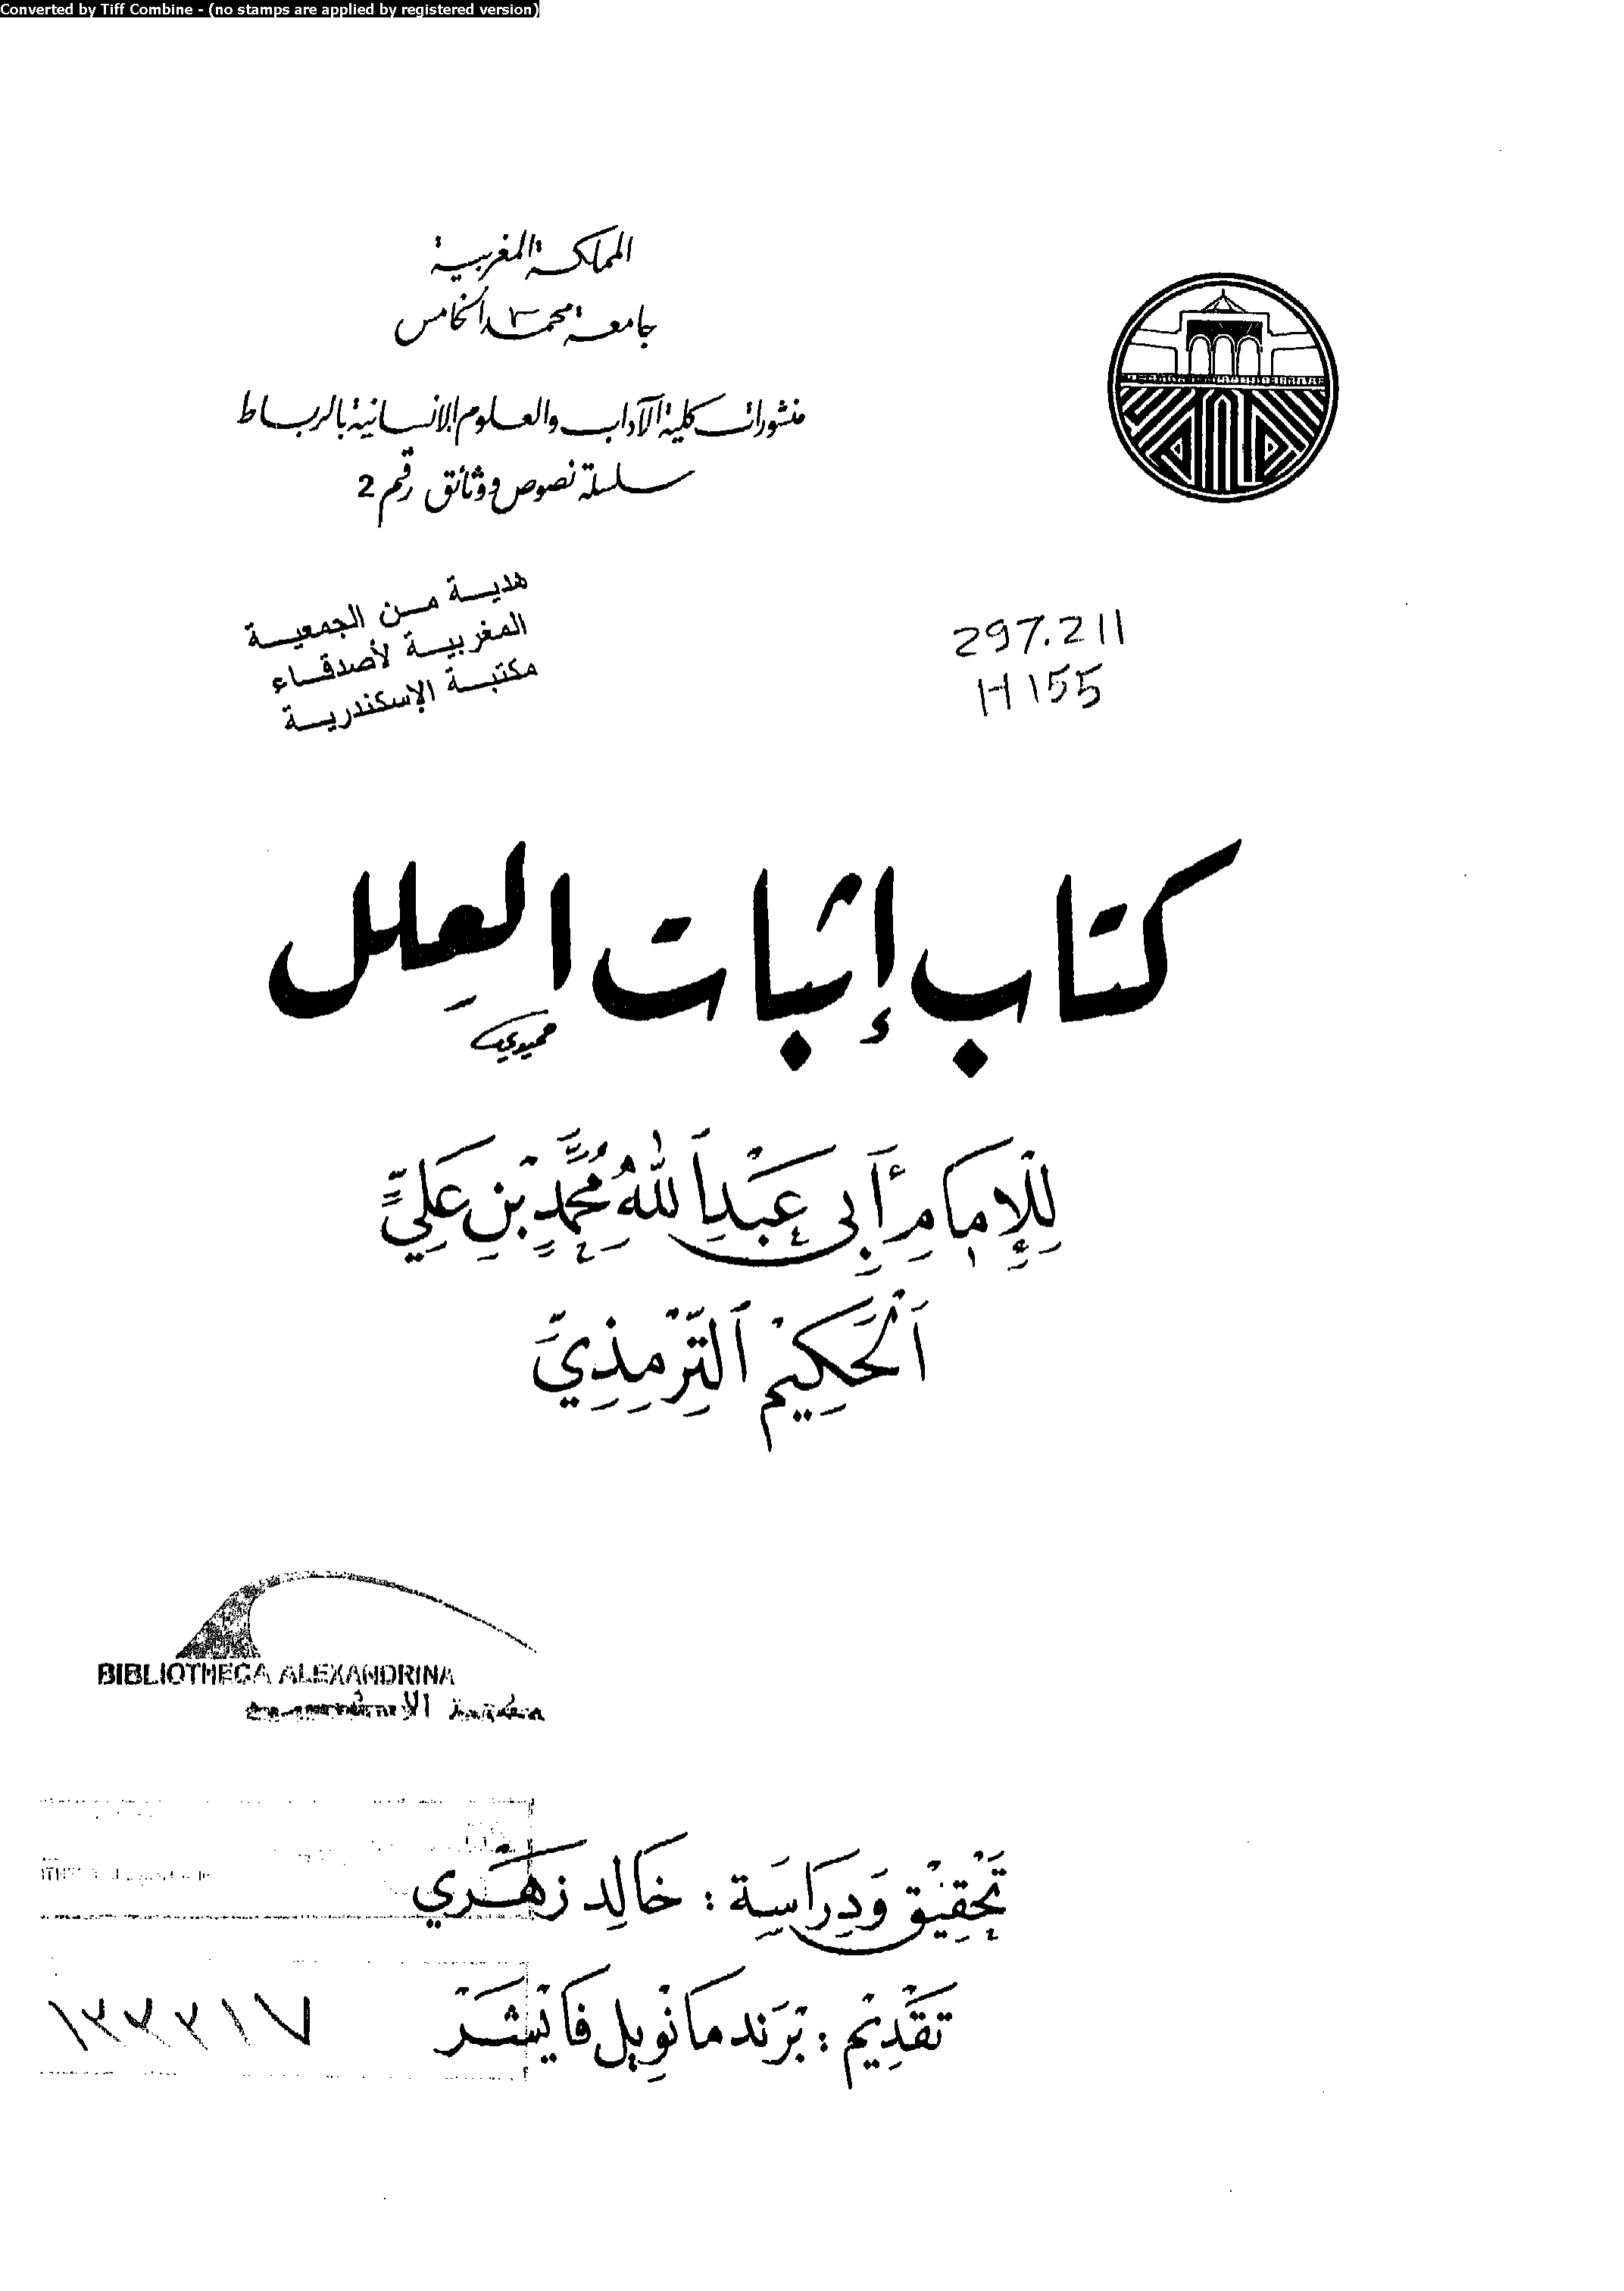 Converted by Tiff Combine - (no stamps are applied by registered version)
المملكة المغربية
جامعة محمد الخامس
منشورات كلية الآداب والعلوم الإنسانية بالرباط
سلسلة نصوص ووثائق رقم 2
هدية من الجمعية
المغربية لأصدقاء
مكتبة الإسكندرية
297.211
H155
كتاب إثبات العلل
حميدي
لِلْإِمَامِ أَبِي عَبْدِ اللهِ مُحَمَّدِ بْنِ عَلِيٍّ
اَلْحَكِيمْ اَلتِّرْمِذِيِّ
BIBLIOTHECA ALEXANDRINA
مكتبة الإسكندرية
تَحْقِيْق وَدِرَاسَة : خَالِد زَهْرِي
تَقْدِيْم : بَرَند مَانْوِيل فَايْشَر
١٣٣٢١٧